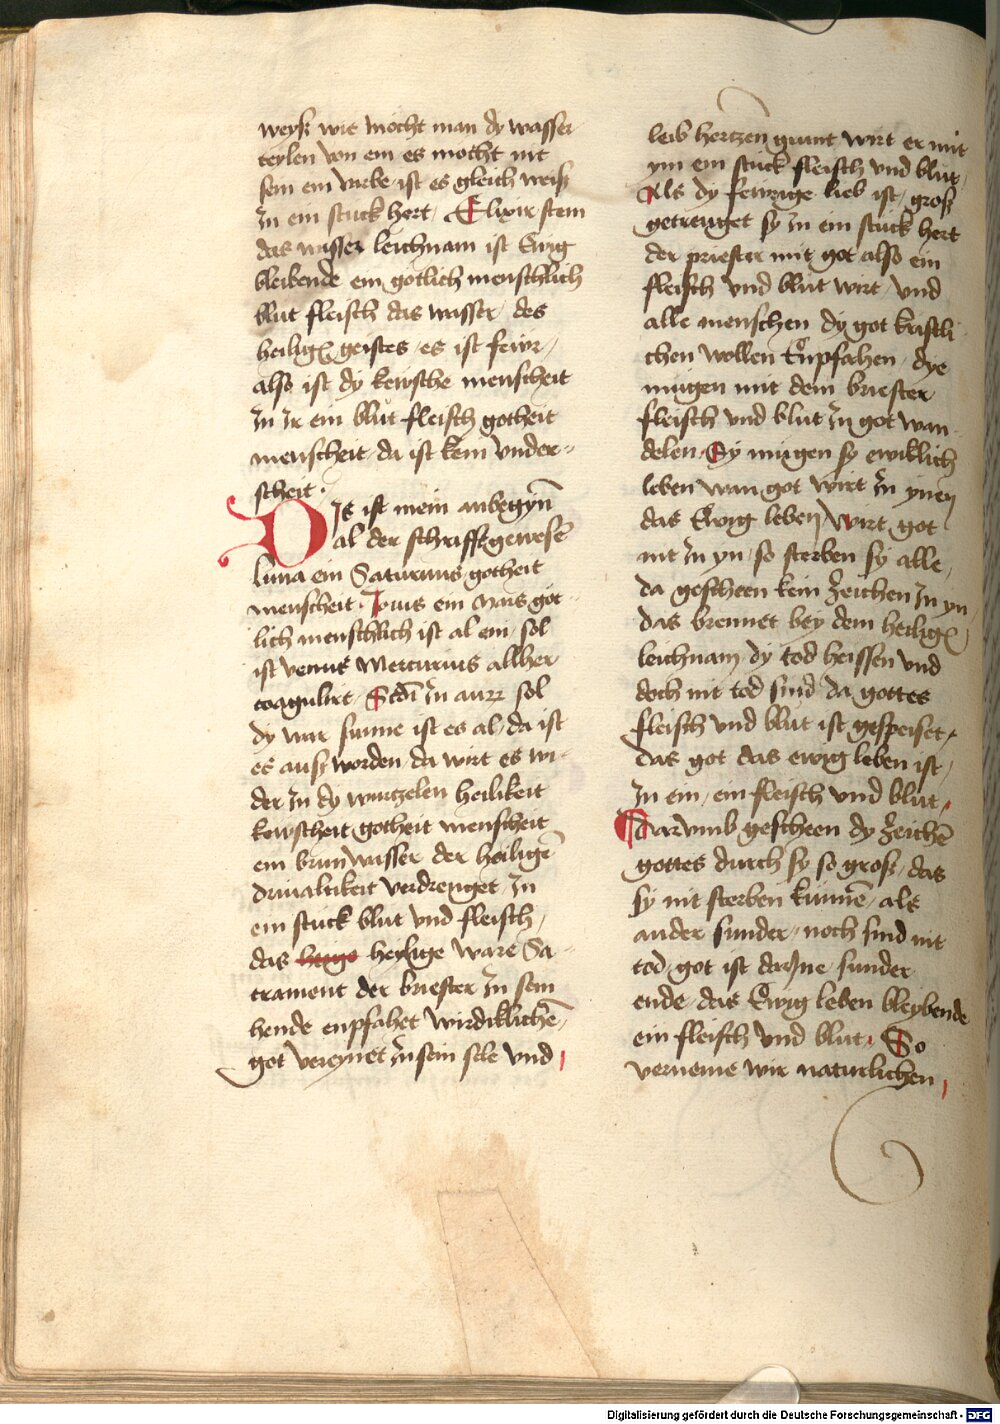 weyß wie mocht man dy wasser
teylen von em es mocht nit
sein ein varbe ist es gleich weiß
zu ein stuck hert / Elixir stein
das wasser leichnam ist Ewig
bleibende ein gotlich menschlich
blut fleisch das wasser / des
heilig geistes / es ist fewr /
also ist dy kewsche menscheit
zu ir ein blut fleisch gotheit
menscheit / da ist kein vnder=
scheit ·
DJs ist mein anbegyn̄
al der schrifft gewesē
luna ein Saturnus gotheit
menscheit · Jouis ein Mars got=
lich menschlich ist al ein / sol
ist venus Mercurius allher
coagulirt / Stāi zu aurr sol
dy war sunne ist es al / da ist
es auß worden / da wirt es wi=
der zu dy wurtzelen heilikeit
kewscheit gotheit menscheit
ein brun wasser der heiligē
driualtikeit verdrenget zu
ein stuck blut vnd fleisch /
das heige heylige ware Sa=
crament der briester zu sein
hende enpfahet wirdiklichē /
got vereynet zu sein sele vnd /
leib hertzen grunt wirt er mit
ym ein stuck fleisch vnd blut /
Als dy fewrige lieb ist / groß
getrenget sy zu ein stuck hert
der priester mit got also ein
fleisch vnd blut wirt / vnd
alle menschen dy got kristli=
chen wollen Enpfahen / dye
mugen mit dem briester
fleisch vnd blut zu got wan=
delen / Sy mugen sy ewiklich
leben wan got wirt zu ynen
das Ewig leben wirt got
nit zu yn / so sterben sy alle /
da gescheen kein zeichen zu yn
das brennet bey dem heilig
leichnam dy tod heissen vnd
doch nit tod sind da gottes
fleisch vnd blut ist gespeiset /
das got das ewig leben ist /
zu ein / ein fleisch vnd blut /
Darumb gescheen dy zeichē
gottes durch sy so groß / das
sy nit sterben kunnē / als
ander sunder / noch sind nit
tod / got ist darjne sunder
ende / das Ewig leben bleybende
ein fleisch vnd blut / So
verneme wir naturlichen /
Digitalisierung gefördert durch die Deutsche Forschungsgemeinschaft - DFG